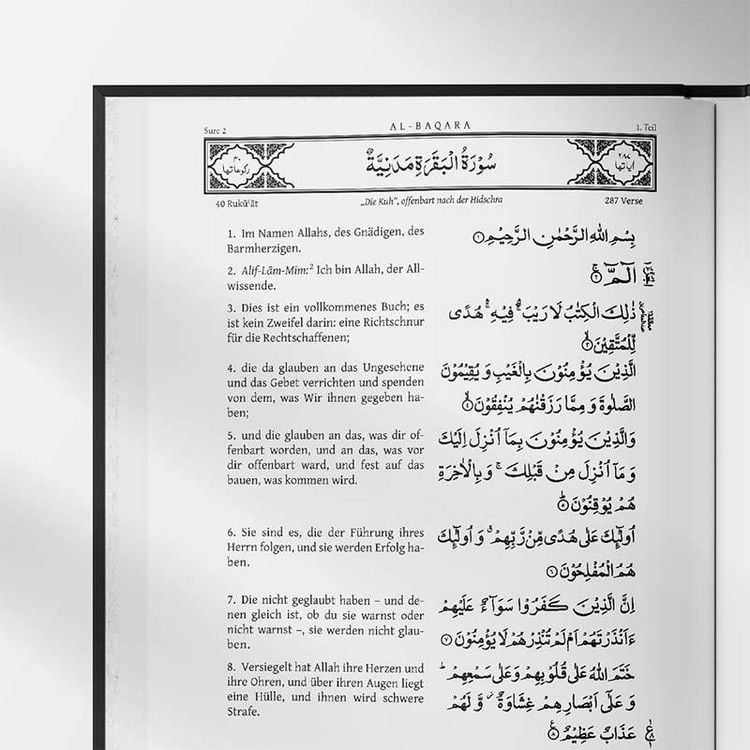 Sure 2 AL-BAQARA 1. Teil
٢٨٧ سُوْرَةُ الْبَقَرَةِ مَدَنِيَّةٌ ٤٠
اياتها ركوعاتها
40 Rukūʿāt „Die Kuh“, offenbart nach der Hidschra 287 Verse
1. Im Namen Allahs, des Gnädigen, des
Barmherzigen.
2. Alif-Lām-Mīm:² Ich bin Allah, der All-
wissende.
3. Dies ist ein vollkommenes Buch; es
ist kein Zweifel darin: eine Richtschnur
für die Rechtschaffenen;
4. die da glauben an das Ungesehene
und das Gebet verrichten und spenden
von dem, was Wir ihnen gegeben ha-
ben;
5. und die glauben an das, was dir of-
fenbart worden, und an das, was vor
dir offenbart ward, und fest auf das
bauen, was kommen wird.
6. Sie sind es, die der Führung ihres
Herrn folgen, und sie werden Erfolg ha-
ben.
7. Die nicht geglaubt haben – und de-
nen gleich ist, ob du sie warnst oder
nicht warnst –, sie werden nicht glau-
ben.
8. Versiegelt hat Allah ihre Herzen und
ihre Ohren, und über ihren Augen liegt
eine Hülle, und ihnen wird schwere
Strafe.
بِسْمِ اللّٰهِ الرَّحْمٰنِ الرَّحِيْمِ ۝١
الٓمّٓ ۝٢
ذٰلِكَ الْكِتٰبُ لَا رَيْبَ ۛ فِيْهِ ۛ هُدًى
لِّلْمُتَّقِيْنَ ۝٣
الَّذِيْنَ يُؤْمِنُوْنَ بِالْغَيْبِ وَ يُقِيْمُوْنَ
الصَّلٰوةَ وَ مِمَّا رَزَقْنٰهُمْ يُنْفِقُوْنَ ۝٤
وَ الَّذِيْنَ يُؤْمِنُوْنَ بِمَاۤ اُنْزِلَ اِلَيْكَ
وَ مَاۤ اُنْزِلَ مِنْ قَبْلِكَ ۚ وَ بِالْاٰخِرَةِ
هُمْ يُوْقِنُوْنَ ۝٥
اُولٰٓئِكَ عَلٰى هُدًى مِّنْ رَّبِّهِمْ ۗ وَ اُولٰٓئِكَ
هُمُ الْمُفْلِحُوْنَ ۝٦
اِنَّ الَّذِيْنَ كَفَرُوْا سَوَآءٌ عَلَيْهِمْ
ءَاَنْذَرْتَهُمْ اَمْ لَمْ تُنْذِرْهُمْ لَا يُؤْمِنُوْنَ ۝٧
خَتَمَ اللّٰهُ عَلٰى قُلُوْبِهِمْ وَ عَلٰى سَمْعِهِمْ ؕ
وَ عَلٰۤى اَبْصَارِهِمْ غِشَاوَةٌ ۫ وَّ لَهُمْ
عَذَابٌ عَظِيْمٌ ۝٨